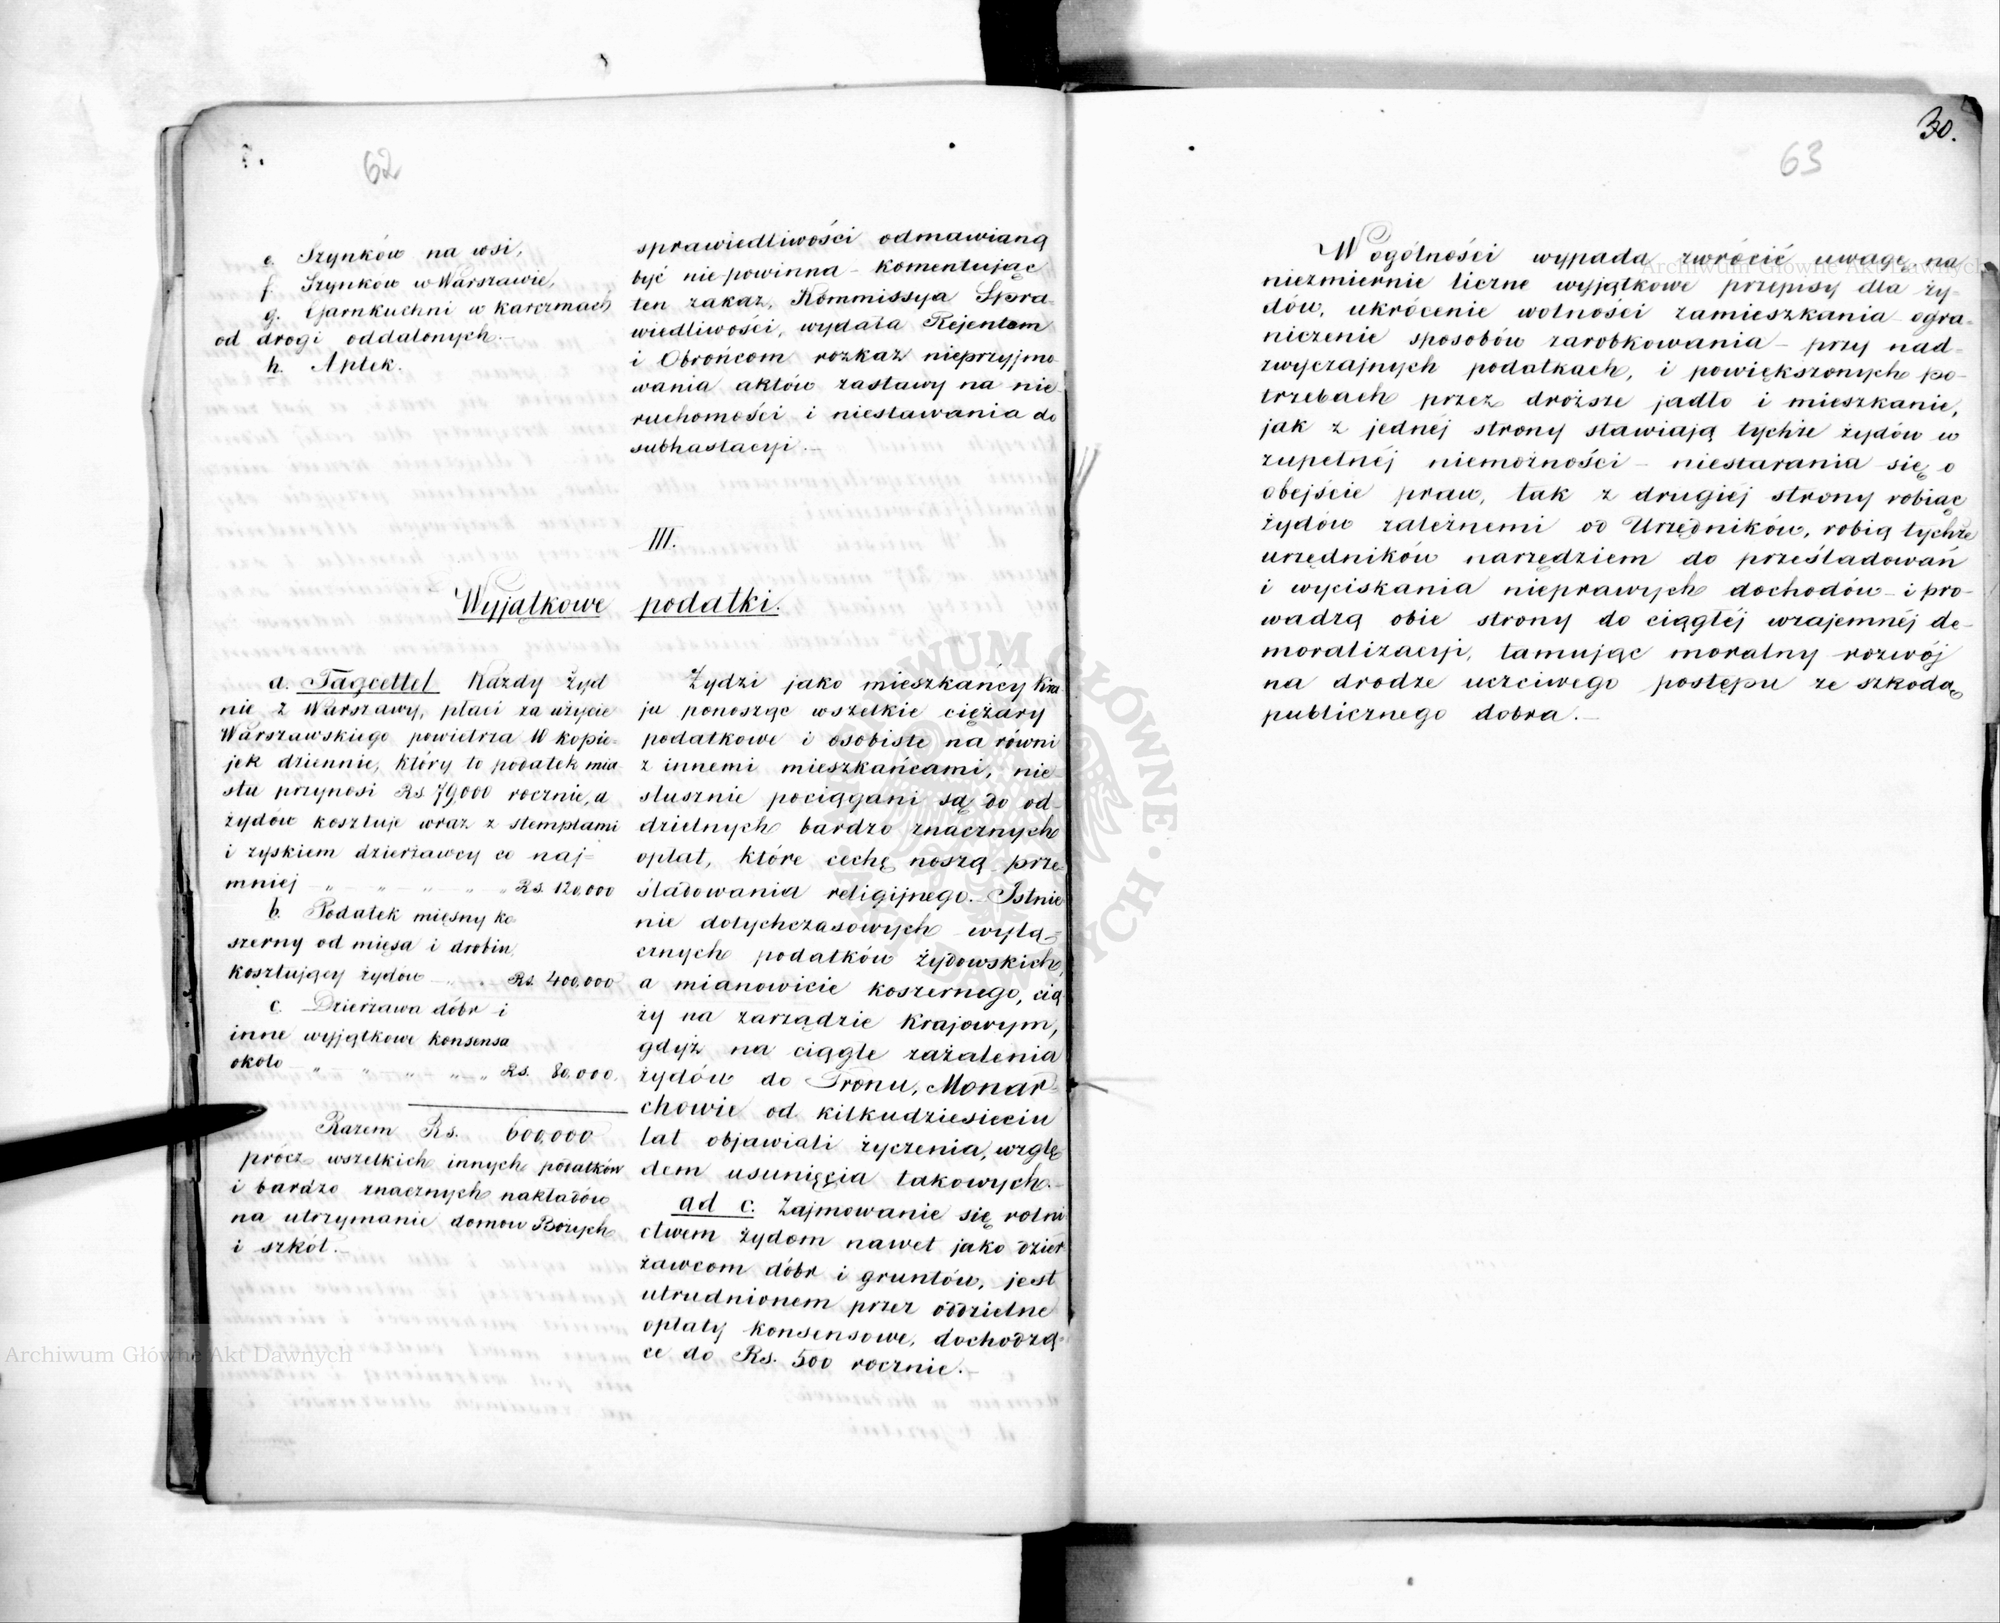 62
e. Szynków na wsi,
f. Szynków w Warszawie,
g. Garnkuchni w karczmach
od drogi oddalonych.—
h. Aptek.
sprawiedliwości odmawianą
być nie powinna – komentując
ten zakaz, Kommissya Spra-
wiedliwości, wydała Rejentom
i Obrońcom rozkaz nieprzyjmo-
wania aktów zastawy na nie-
ruchomości i niestawania do
subhastacyi.—
III.
Wyjątkowe podatki.
a. Tagcettel Każdy Żyd
nie z Warszawy, płaci za użycie
Warszawskiego powietrza 10 kopie-
jek dziennie, który to podatek mia
stu przynosi Rs 79,000 rocznie, a
żydów kosztuje wraz z stemplami
i zyskiem dzierżawcy co naj-
mniej – „ – „ – „ – „ – „ Rs. 120,000
b. Podatek mięsny ko
szerny od mięsa i drobiu,
kosztujący żydów – „ – Rs. 400,000
c. Dzierżawa dóbr i
inne wyjątkowe konsensa
około „ „ „ „ „ Rs. 80,000.
Razem Rs. 600,000
prócz wszelkich innych podatków
i bardzo znacznych nakładów
na utrzymanie domów Bożych
i szkół.—
Żydzi jako mieszkańcy Kra-
ju ponosząc wszelkie ciężary
podatkowe i osobiste na równi
z innemi mieszkańcami, nie-
słusznie pociągani są do od-
dzielnych bardzo znacznych
opłat, które cechę noszą prze-
śladowania religijnego.– Istnie
nie dotychczasowych wyłą-
cznych podatków żydowskich,
a mianowicie koszernego, cią
ży na zarządzie Krajowym,
gdyż na ciągłe zażalenia
żydów do Tronu, Monar-
chowie od kilkudziesięciu
lat objawiali życzenia, wzglę
dem usunięcia takowych.–
ad c. Zajmowanie się rolni
ctwem żydom nawet jako dzier
żawcom dóbr i gruntów, jest
utrudnionem przez oddzielne
opłaty konsensowe, dochodzą-
ce do Rs. 500 rocznie.–
30.
63
W ogólności wypada zwrócić uwagę na
niezmiernie liczne wyjątkowe przepisy dla ży-
dów, ukrócenie wolności zamieszkania ogra-
niczenie sposobów zarobkowania – przy nad-
zwyczajnych podatkach, i powiększonych po-
trzebach przez droższe jadło i mieszkanie,
jak z jednéj strony stawiają tychże żydów w
zupełnéj niemożności – niestarania się o
obejście praw, tak z drugiéj strony robiąc
żydów zależnemi od Urzędników, robią tychże
urzędników narzędziem do prześladowań
i wyciskania nieprawych dochodów – i pro-
wadzą obie strony do ciągłéj wzajemnéj de-
moralizacyi, tamując moralny rozwój
na drodze uczciwego postępu ze szkodą
publicznego dobra.—
Archiwum Główne Akt Dawnych
Archiwum Główne Akt Dawnych
ARCHIWUM GŁÓWNE AKT DAWNYCH